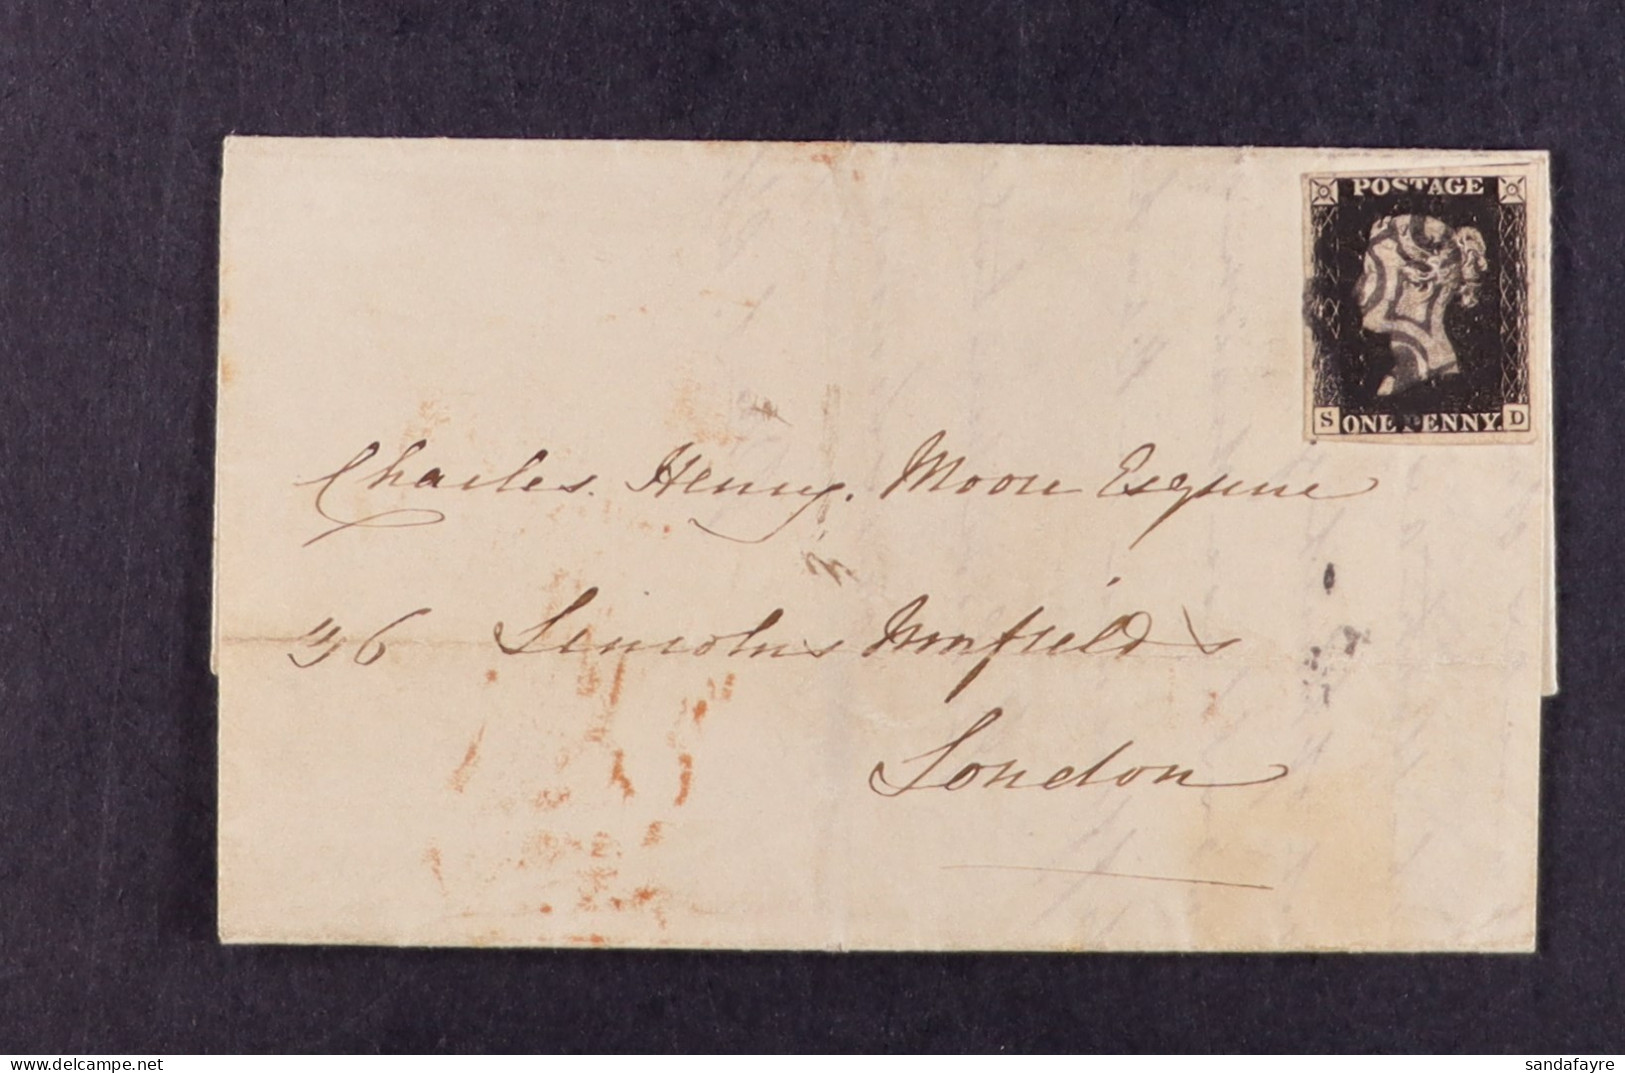 POSTAGE
S ONE PENNY. D
Charles. Henry. Moore Esquire
36 Lincolns Innfields
London
www.delcampe.net
sandafayre